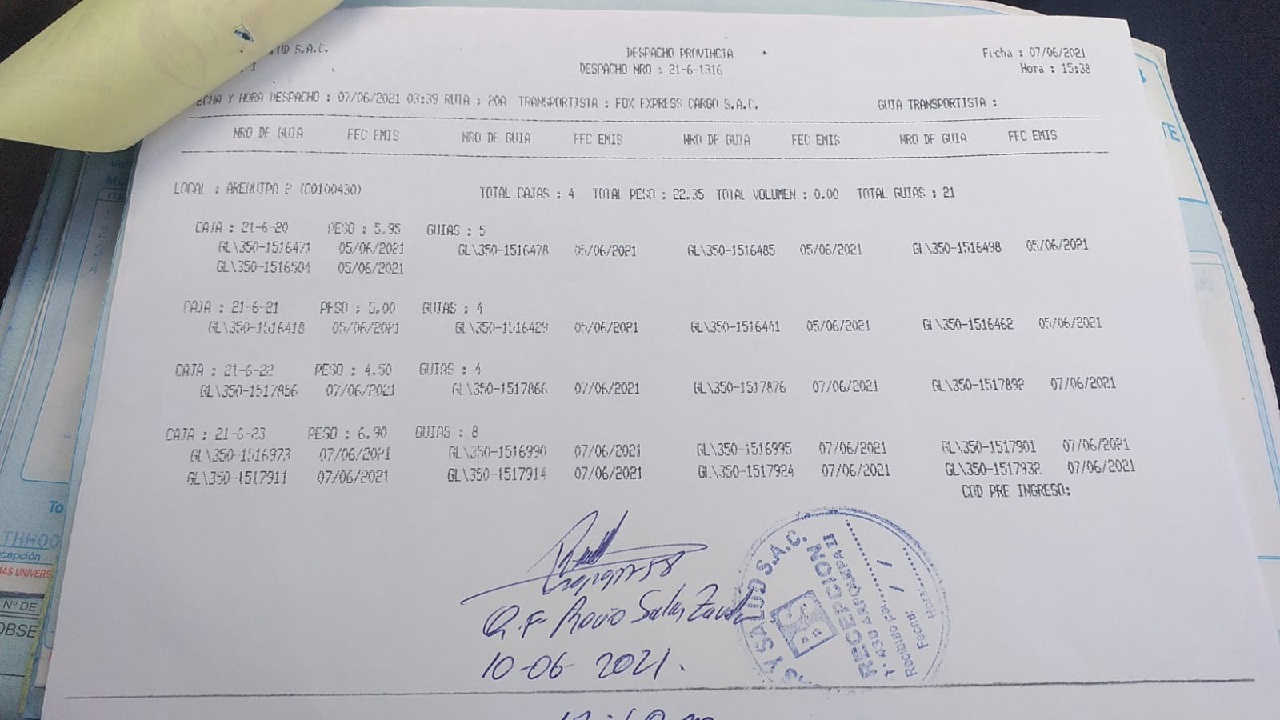 UD S.A.C. DESPACHO PROVINCIA Fecha : 07/06/2021
1 DESPACHO NRO : 21-6-1316 Hora : 15:38
ECHA Y HORA DESPACHO : 07/06/2021 03:39 RUTA : POA TRANSPORTISTA : FOX EXPRESS CARGO S.A.C. GUIA TRANSPORTISTA :
NRO DE GUIA FEC EMIS NRO DE GUIA FEC EMIS NRO DE GUIA FEC EMIS NRO DE GUIA FEC EMIS
LOCAL : AREQUIPA 2 (C0100430) TOTAL CAJAS : 4 TOTAL PESO : 22.35 TOTAL VOLUMEN : 0.00 TOTAL GUIAS : 21
CAJA : 21-6-20 PESO : 5.95 GUIAS : 5
GL\350-1516471 05/06/2021 GL\350-1516478 05/06/2021 GL\350-1516485 05/06/2021 GL\350-1516498 05/06/2021
GL\350-1516504 05/06/2021
CAJA : 21-6-21 PESO : 5.00 GUIAS : 4
GL\350-1516418 05/06/2021 GL\350-1516429 05/06/2021 GL\350-1516441 05/06/2021 GL\350-1516462 05/06/2021
CAJA : 21-6-22 PESO : 4.50 GUIAS : 4
GL\350-1517856 07/06/2021 GL\350-1517866 07/06/2021 GL\350-1517876 07/06/2021 GL\350-1517892 07/06/2021
CAJA : 21-6-23 PESO : 6.90 GUIAS : 8
GL\350-1516973 07/06/2021 GL\350-1516990 07/06/2021 GL\350-1516995 07/06/2021 GL\350-1517901 07/06/2021
GL\350-1517911 07/06/2021 GL\350-1517914 07/06/2021 GL\350-1517924 07/06/2021 GL\350-1517932 07/06/2021
COD PRE INGRESO:
Q.F Rocio Salas
10-06-2021.
AS Y SALUD S.A.C.
RECEPCION
1-430 AREQUIPA II
Recibido por:
Fecha: / /
Hora:
TE
To
cepción
AS UNIVERS
Nº DE
OBSE